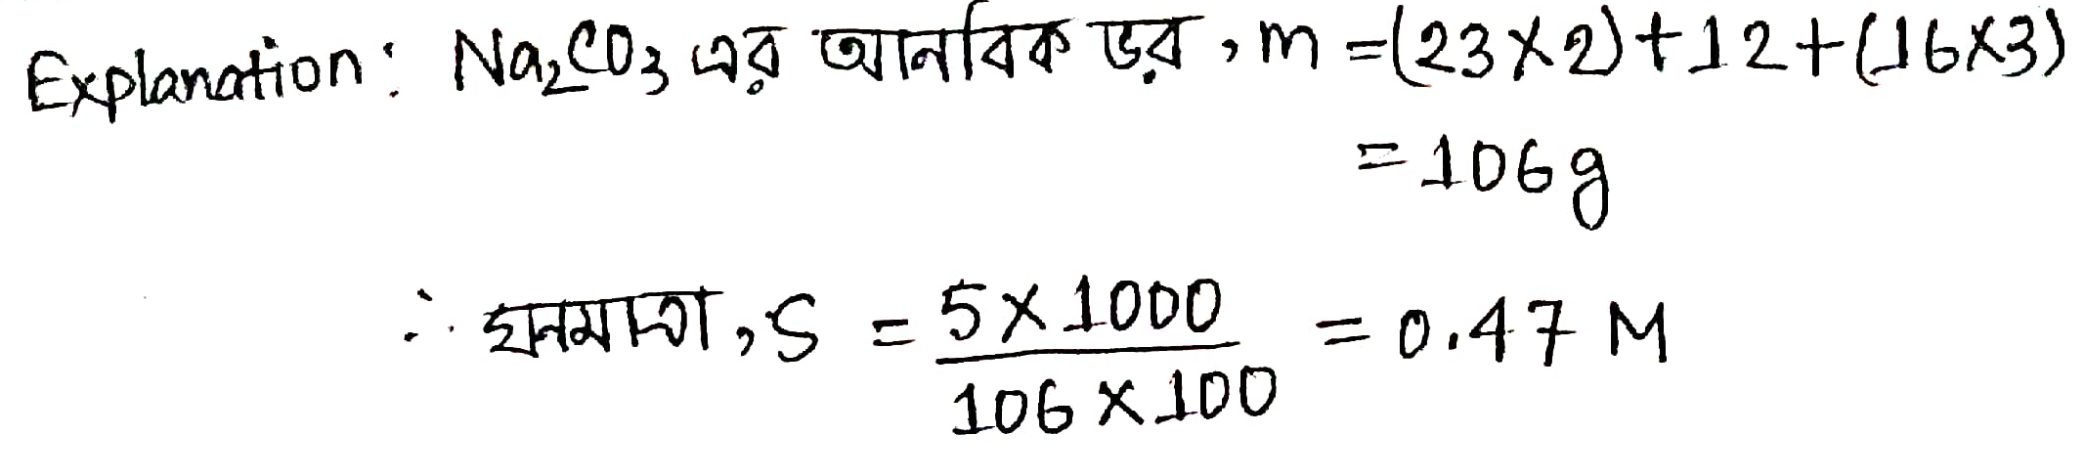 Explanation: Na₂CO₃ এর আনবিক ভর, m = (23×2)+12+(16×3)
= 106g
∴ ঘনমাত্রা, S = 5×1000 / 106×100 = 0.47 M